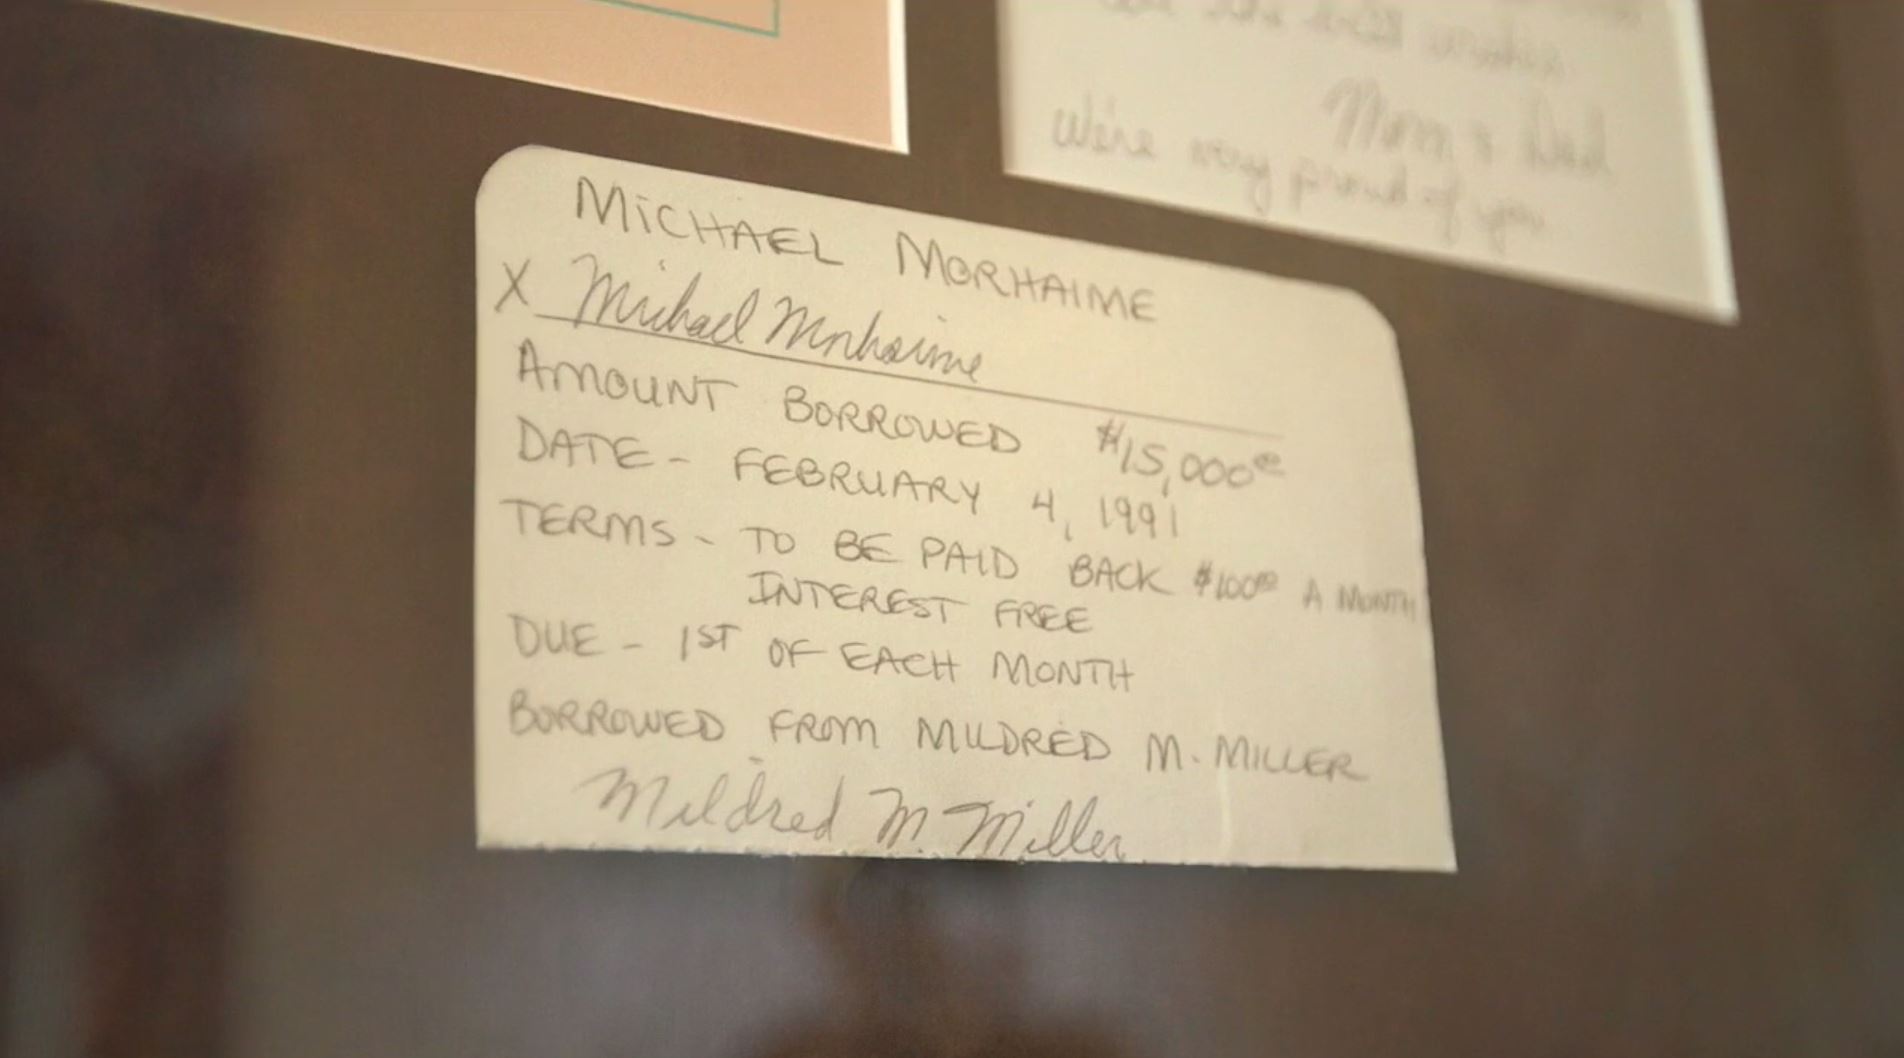 best wishes
Mom & Dad
We're very proud of you
MiCHAEL MORHAIME
X Michael Morhaime
AMOUNT BORROWED $15,000ºº
DATE - FEBRUARY 4, 1991
TERMS - TO BE PAID BACK $100ºº A MONTH
INTEREST FREE
DUE - 1ST OF EACH MONTH
BORROWED FROM MILDRED M. MILLER
Mildred M. Miller